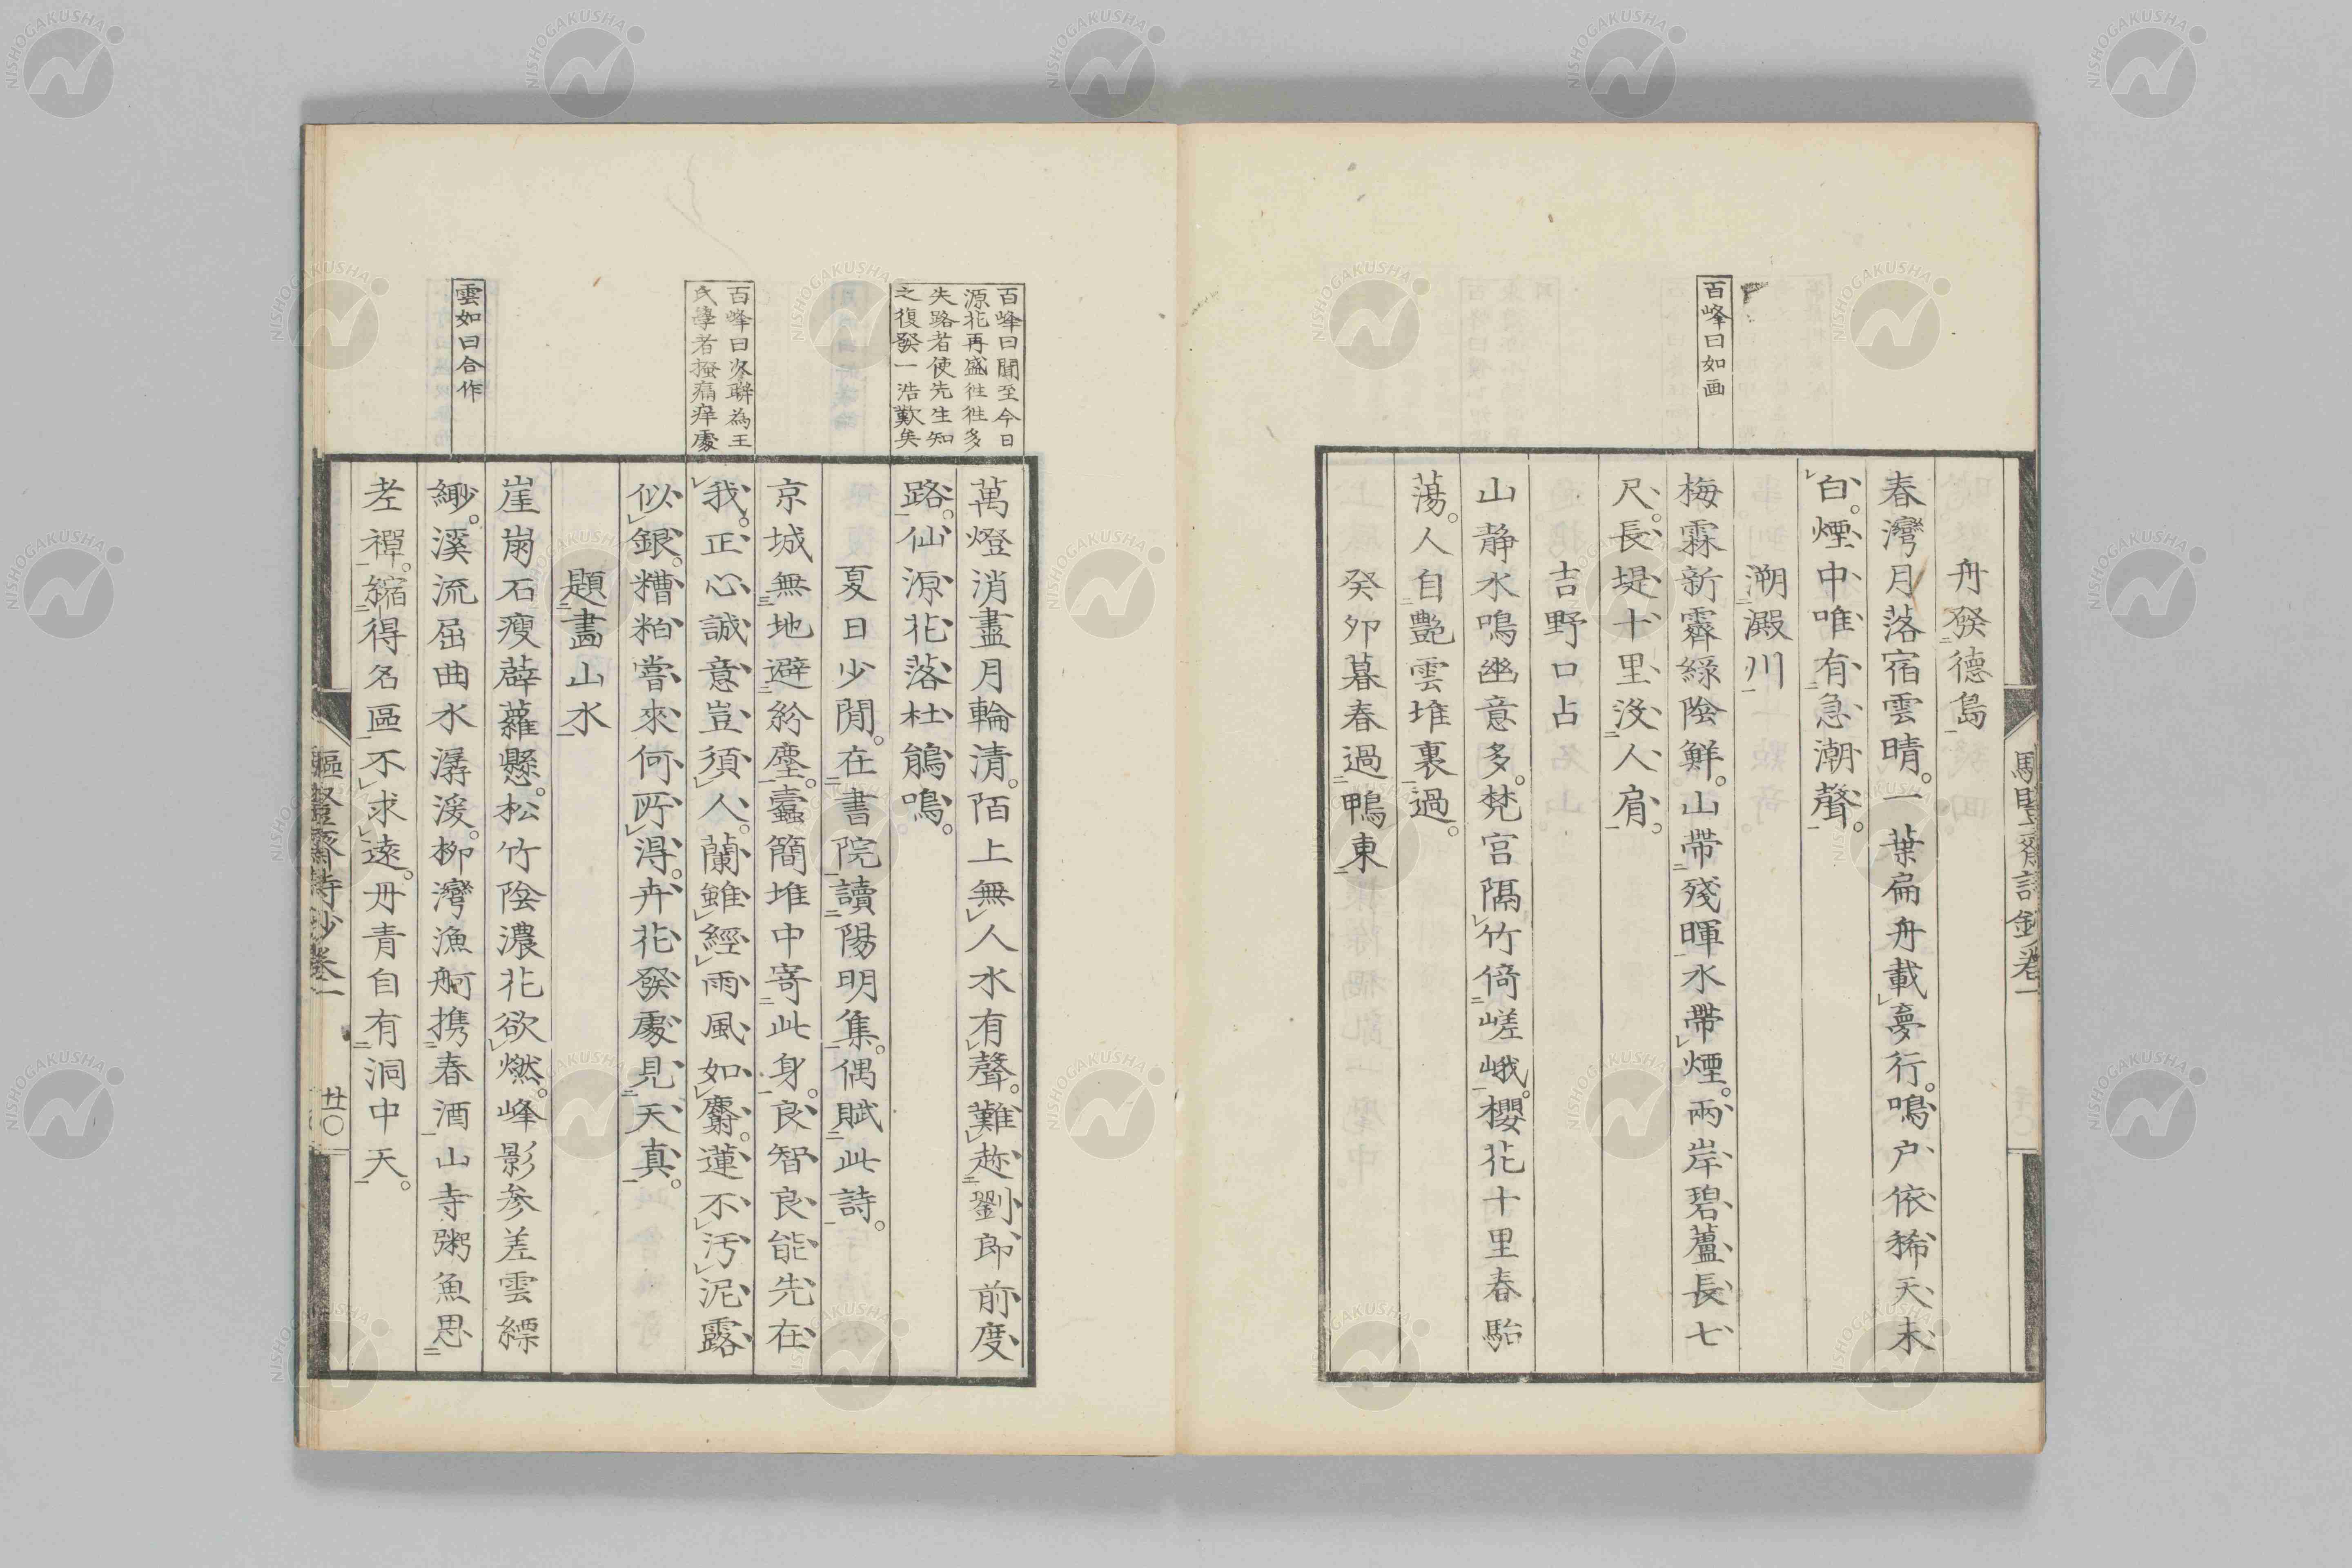 百峰曰如画
舟發德島
春灣月落宿雲晴。一葉扁舟載夢行。鳴戸依稀天未
白。煙中唯有急潮聲。
溯澱川
梅霖新霽緑陰鮮。山帶殘暉水帶煙。兩岸碧蘆長七
尺。長堤十里没人肩。
吉野口占
山静水鳴幽意多。梵宮隔竹倚嵯峨。櫻花十里春駘
蕩。人自艶雲堆裏過。
癸卯暮春過鴨東
百峰曰聞至今日
源花再盛往往多
失路者使先生知
之復發一浩歎矣
百峰曰次聯為王
氏學者搔痛痒處
雲如曰合作
萬燈消盡月輪清。陌上無人水有聲。難趂劉郎前度
路。仙源花落杜鵑鳴。
夏日少間。在書院讀陽明集。偶賦此詩。
京城無地避紛塵。蠧簡堆中寄此身。良智良能先在
我。正心誠意豈須人。蘭雖經雨風如麝。蓮不汚泥露
似銀。糟粕嘗來何所得。卉花發處見天真。
題畫山水
崖崩石瘦薜蘿懸。松竹陰濃花欲燃。峰影参差雲縹
緲。溪流屈曲水潺湲。柳灣漁舸携春酒山寺粥魚思
老禪。縮得名區不求遠。丹青自有洞中天。
詩鈔卷一
廿〇
NISHOGAKUSHA